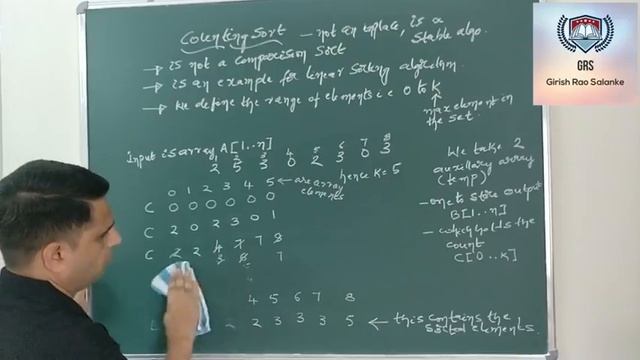 Counting Sort – not an inplace, is a stable algo.
→ is not a comparison sort
→ is an example for linear sorting algorithm.
→ We define the range of elements i.e 0 to K
↑ max element in the set.
1 2 3 4 5 6 7 8
Input is array A[1..n] 2 5 3 0 2 3 0 3
hence K = 5
0 1 2 3 4 5 ← are array elements
C 0 0 0 0 0 0
C 2 0 2 3 0 1
C 2 2 4 7 7 8
3 6 7
4 5 6 7 8
2 3 3 3 5 ← this contains the sorted elements.
We take 2 auxillary array (temp)
- one to store output B[1..n]
- which holds the count C[0..K]
GRS
Girish Rao Salanke